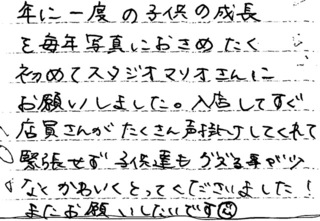 年に一度の子供の成長
を毎年写真におさめたく
初めてスタジオマリオさんに
お願いしました。入店してすぐ
店員さんがたくさん声掛けしてくれて
緊張せず子供達も
なとかわいくとってくださいました!
またお願いしたいです